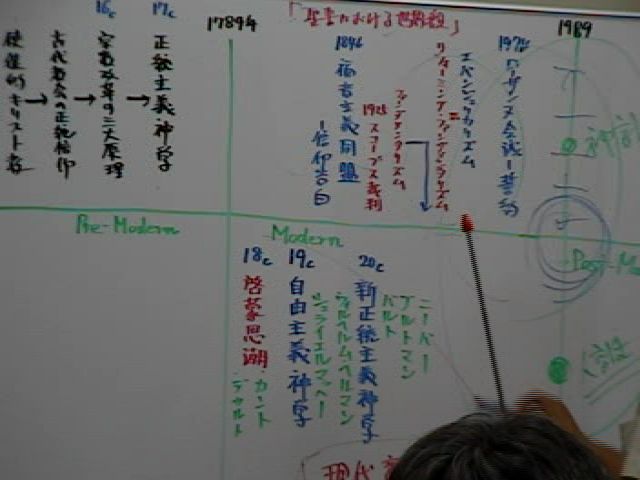 「聖書における
1789年
1989
16c
17c
使徒的キリスト教
古代教会の正統信仰
宗教改革の三大原理
正統主義神学
1846
福音主義同盟
-信仰告白
1925
スコープス裁判
ファンダメンタリズム
エバンジェリカリズム
1974
ローザンヌ会議-誓約
Pre-Modern
Modern
Post-Mo
18c
啓蒙思潮
カント
デカルト
19c
自由主義神学
シュライエルマッハー
ヴィルヘルムヘルマン
20c
新正統主義神学
バルト
ブルトマン
ニーバー
現代